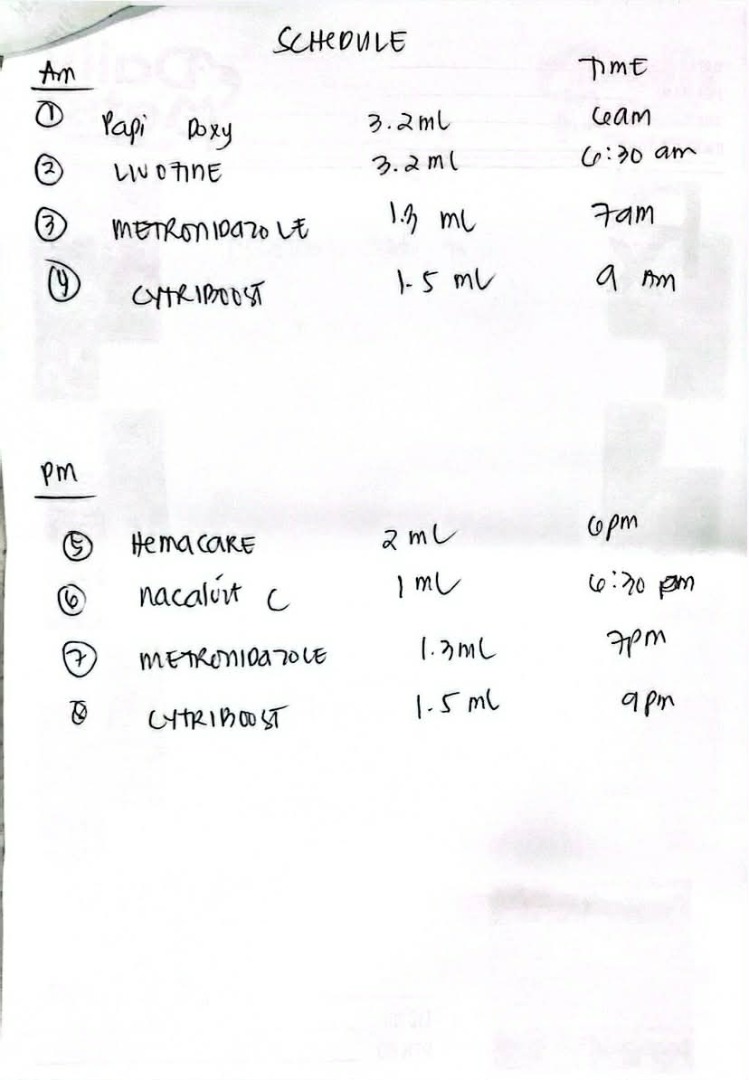 SCHEDULE
Am TIME
① Papi Doxy 3.2ml 6am
② LIVOTINE 3.2ml 6:30 am
③ METRONIDAZOLE 1.3 ml 7am
④ CYTRIBOOST 1.5 ml 9 Am
Pm
⑤ HemacaRE 2 mL 6pm
⑥ nacalvit C 1 mL 6:30 pm
⑦ METRONIDAZOLE 1.3mL 7pm
⑧ CYTRIBOOST 1.5 ml 9pm